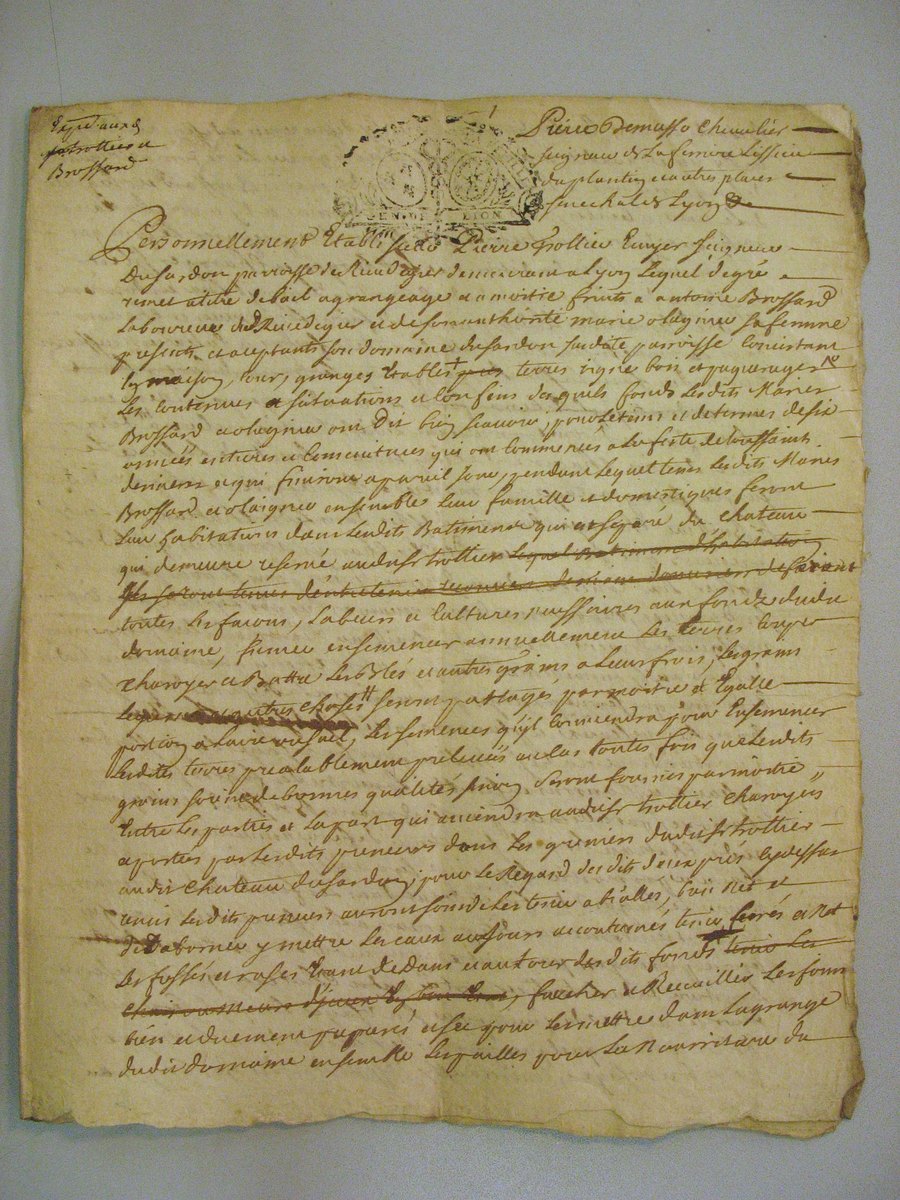 Expédié aux d
Trollier et
Brossard
Pierre Demasso Chevalier
seigneur de La ferriere Lissieu
du plantin et autres places
senechal de Lyon
GEN DE LION
Personnellement Etabli Pierre Trollier Ecuyer seigneur
du fardon parroisse de Rivedegier demeurant a Lyon Lequel de gré
remet a titre de bail a grangeage et a moitié fruits a antoine Brossard
Laboureur de Rivedegier et de son authorité marie olagnier sa femme
presents et aceptants son domaine du fardon susdite parroisse Consistant
en maison, cour, granges Etables terres vigne bois et paquerages
Les Contenues et situations et Confins desquels fonds Lesdits Mariés
Brossard et olagnier ont Dit bien scavoir, pour le tems et de termes de six
années entieres et Consecutives qui ont Commencées a La feste de toussaints
derniere et qui finiront a pareil jour, pendant Lequel tems Lesdits Mariés
Brossard et olagnier ensemble Leur famille et domestiques feront
Leur habitations dans Lesdits Batiments qui est separé du Chateau
qui demeure reservé audit sr trollier Lequel Batiment d'habitation
Ils seront tenus d'entretenir feront
toutes Les facons, Labeurs et Cultures necessaires aux fonds dudit
domaine, fumer ensemencer annuellement Les terres Couper
charoyer et Battre Les Blés et autres grains a Leurs frois, Les grains
et autres Choses seront partagés par moitié et Egalle
portion a Laire au sael, Les semences qu'il Conviendra pour Ensemencer
Lesdites terres prealablement prelevées au Cas toutes fois que Lesdits
grains soient de bonnes qualités sinon seront fournies par moitié
Entre Les parties et La part qui aviendra audit sr trollier Charoyés
aportés par Lesdits preneurs dans Les greniers dudit sr trollier
audit Chateau du fardon, pour Le Regard desdits deux prés Cy dessus
Lesdits preneurs auront soin de Les tenir
y mettre Les eaux aux jours accoutumés tenir Curés et Net
Les fossés et rases Etant de Dans et autour desdits fonds tenir Les
faucher et Recueillir Les foins
bien et duement preparés et sec pour Les mettre dans La grange
dudit domaine ensemble Les pailles pour La Nourriture du